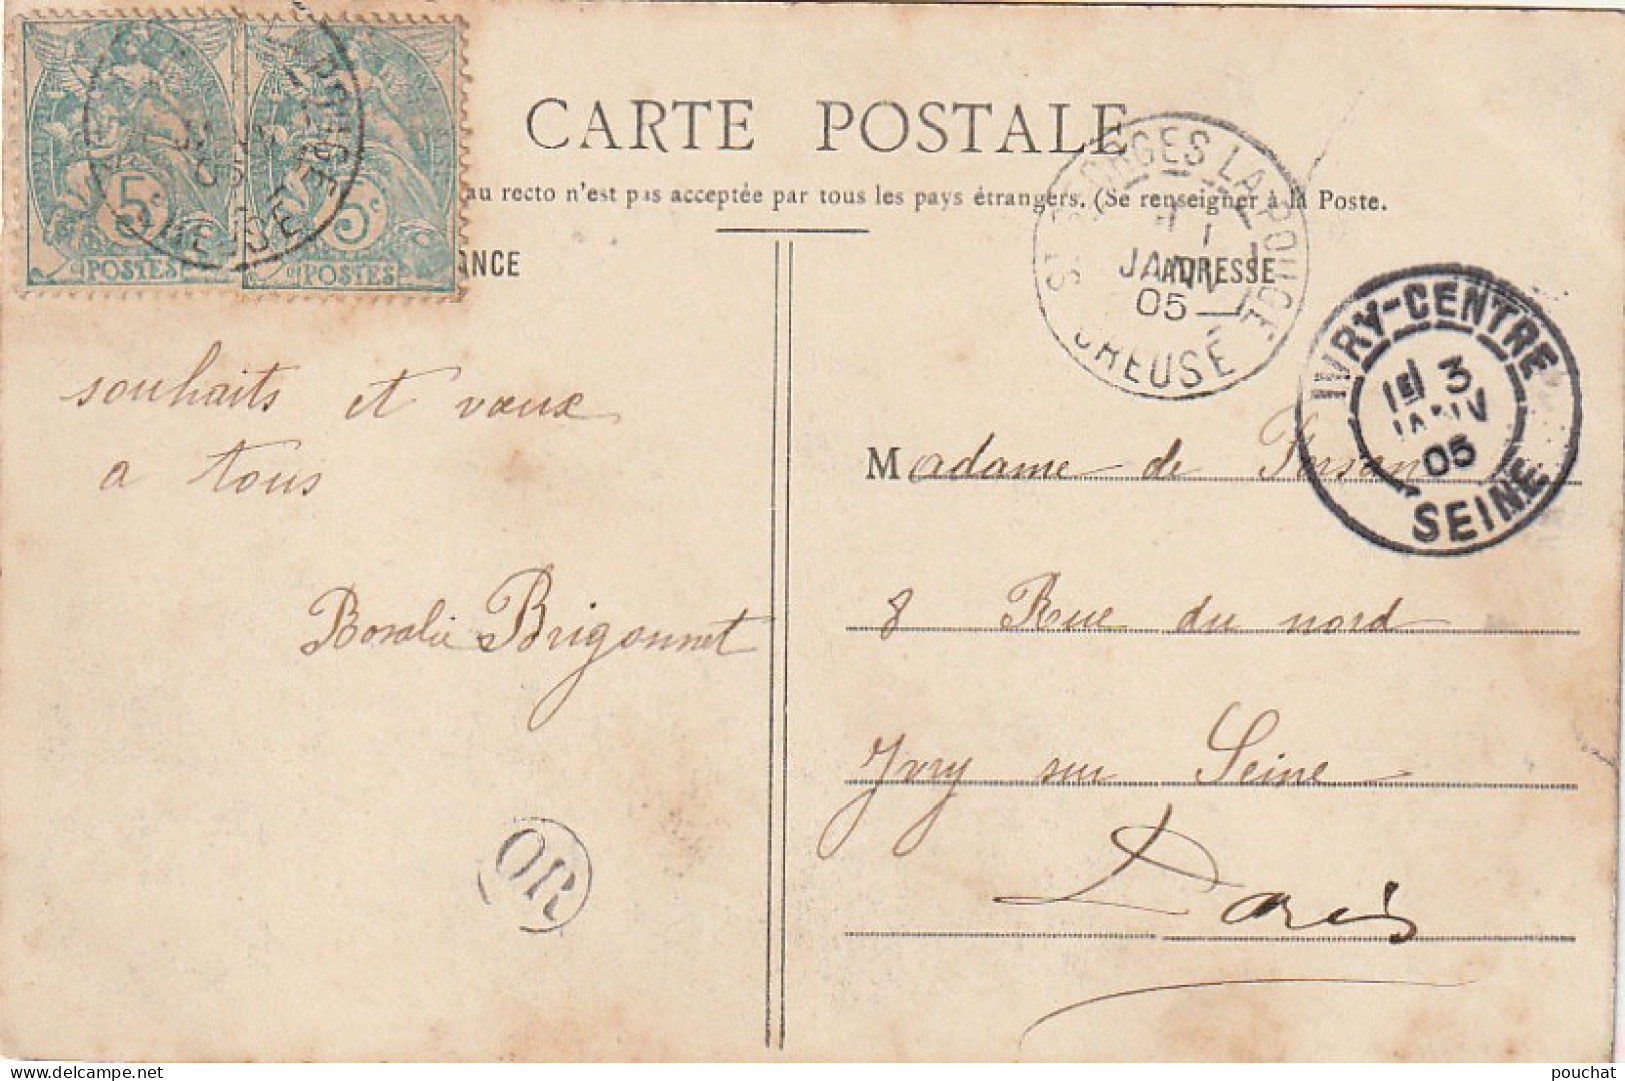 CARTE POSTALE
au recto n'est pas acceptée par tous les pays étrangers. (Se renseigner à la Poste.
ANCE
ADRESSE
5c
POSTES
5c
POSTES
GEORGES LA POUGE
1
JANV
05
CREUSE
IVRY-CENTRE
3
JANV
05
SEINE
souhaits et vœux
a tous
Rosalie Brigonnet
OR
Madame de
8 Rue du nord
Yvry sur Seine
Paris
pouchat